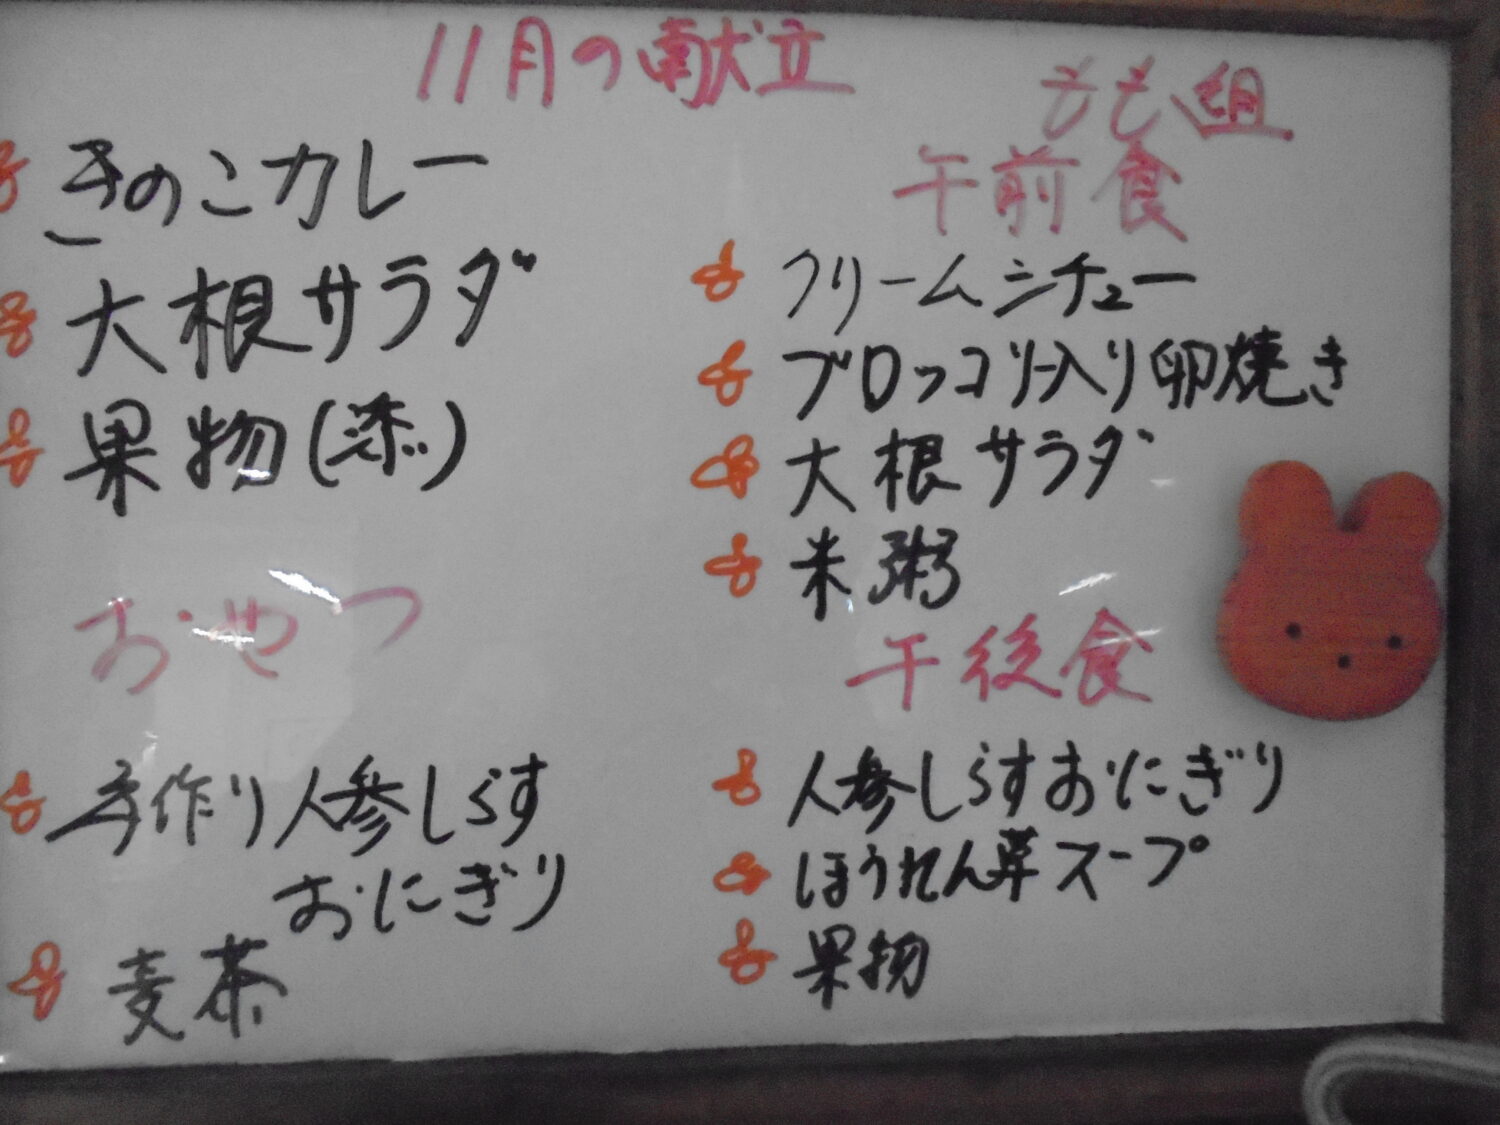 11月の献立
きのこカレー
大根サラダ
果物(添)
おやつ
手作り人参しらす
おにぎり
麦茶
もも組
午前食
クリームシチュー
ブロッコリー入り卵焼き
大根サラダ
米粥
午後食
人参しらすおにぎり
ほうれん草スープ
果物